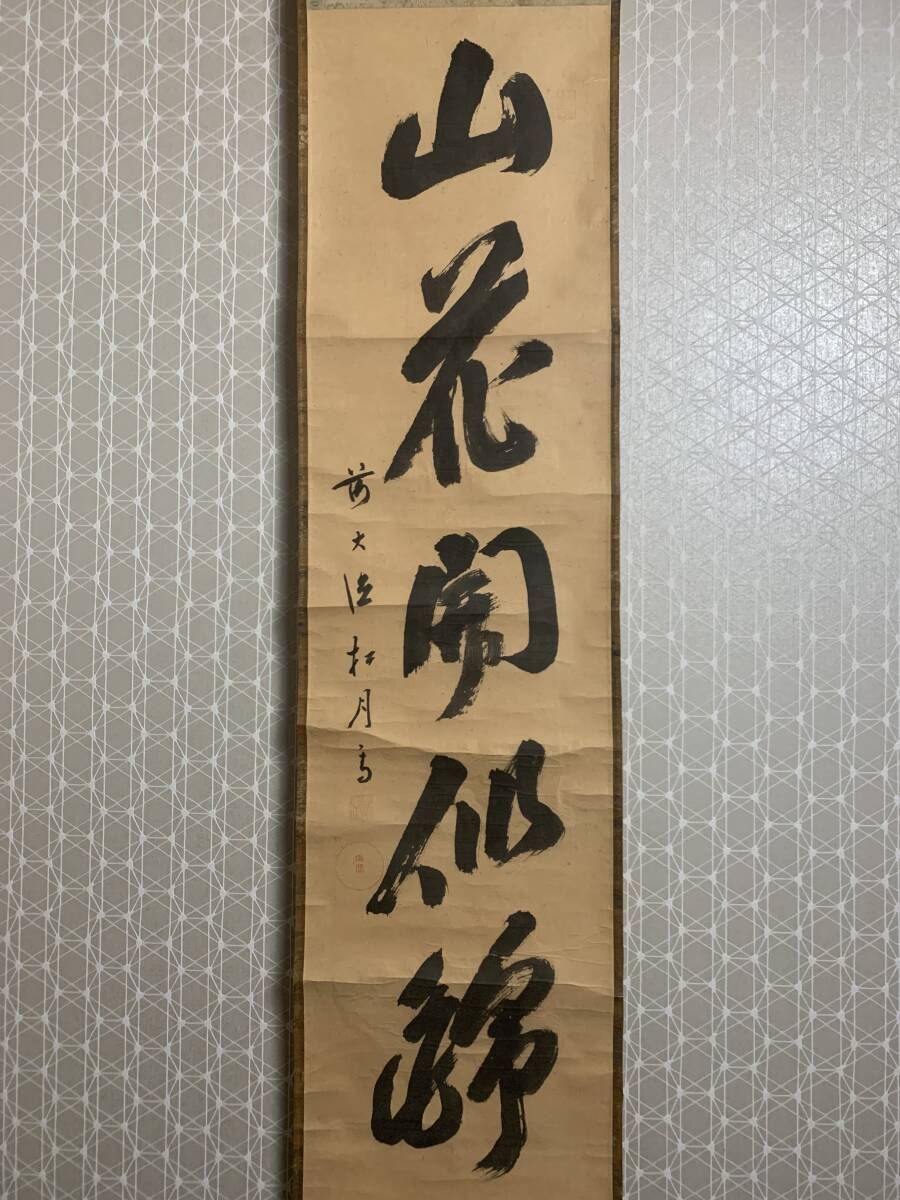 山花開似錦
前大徳松月書